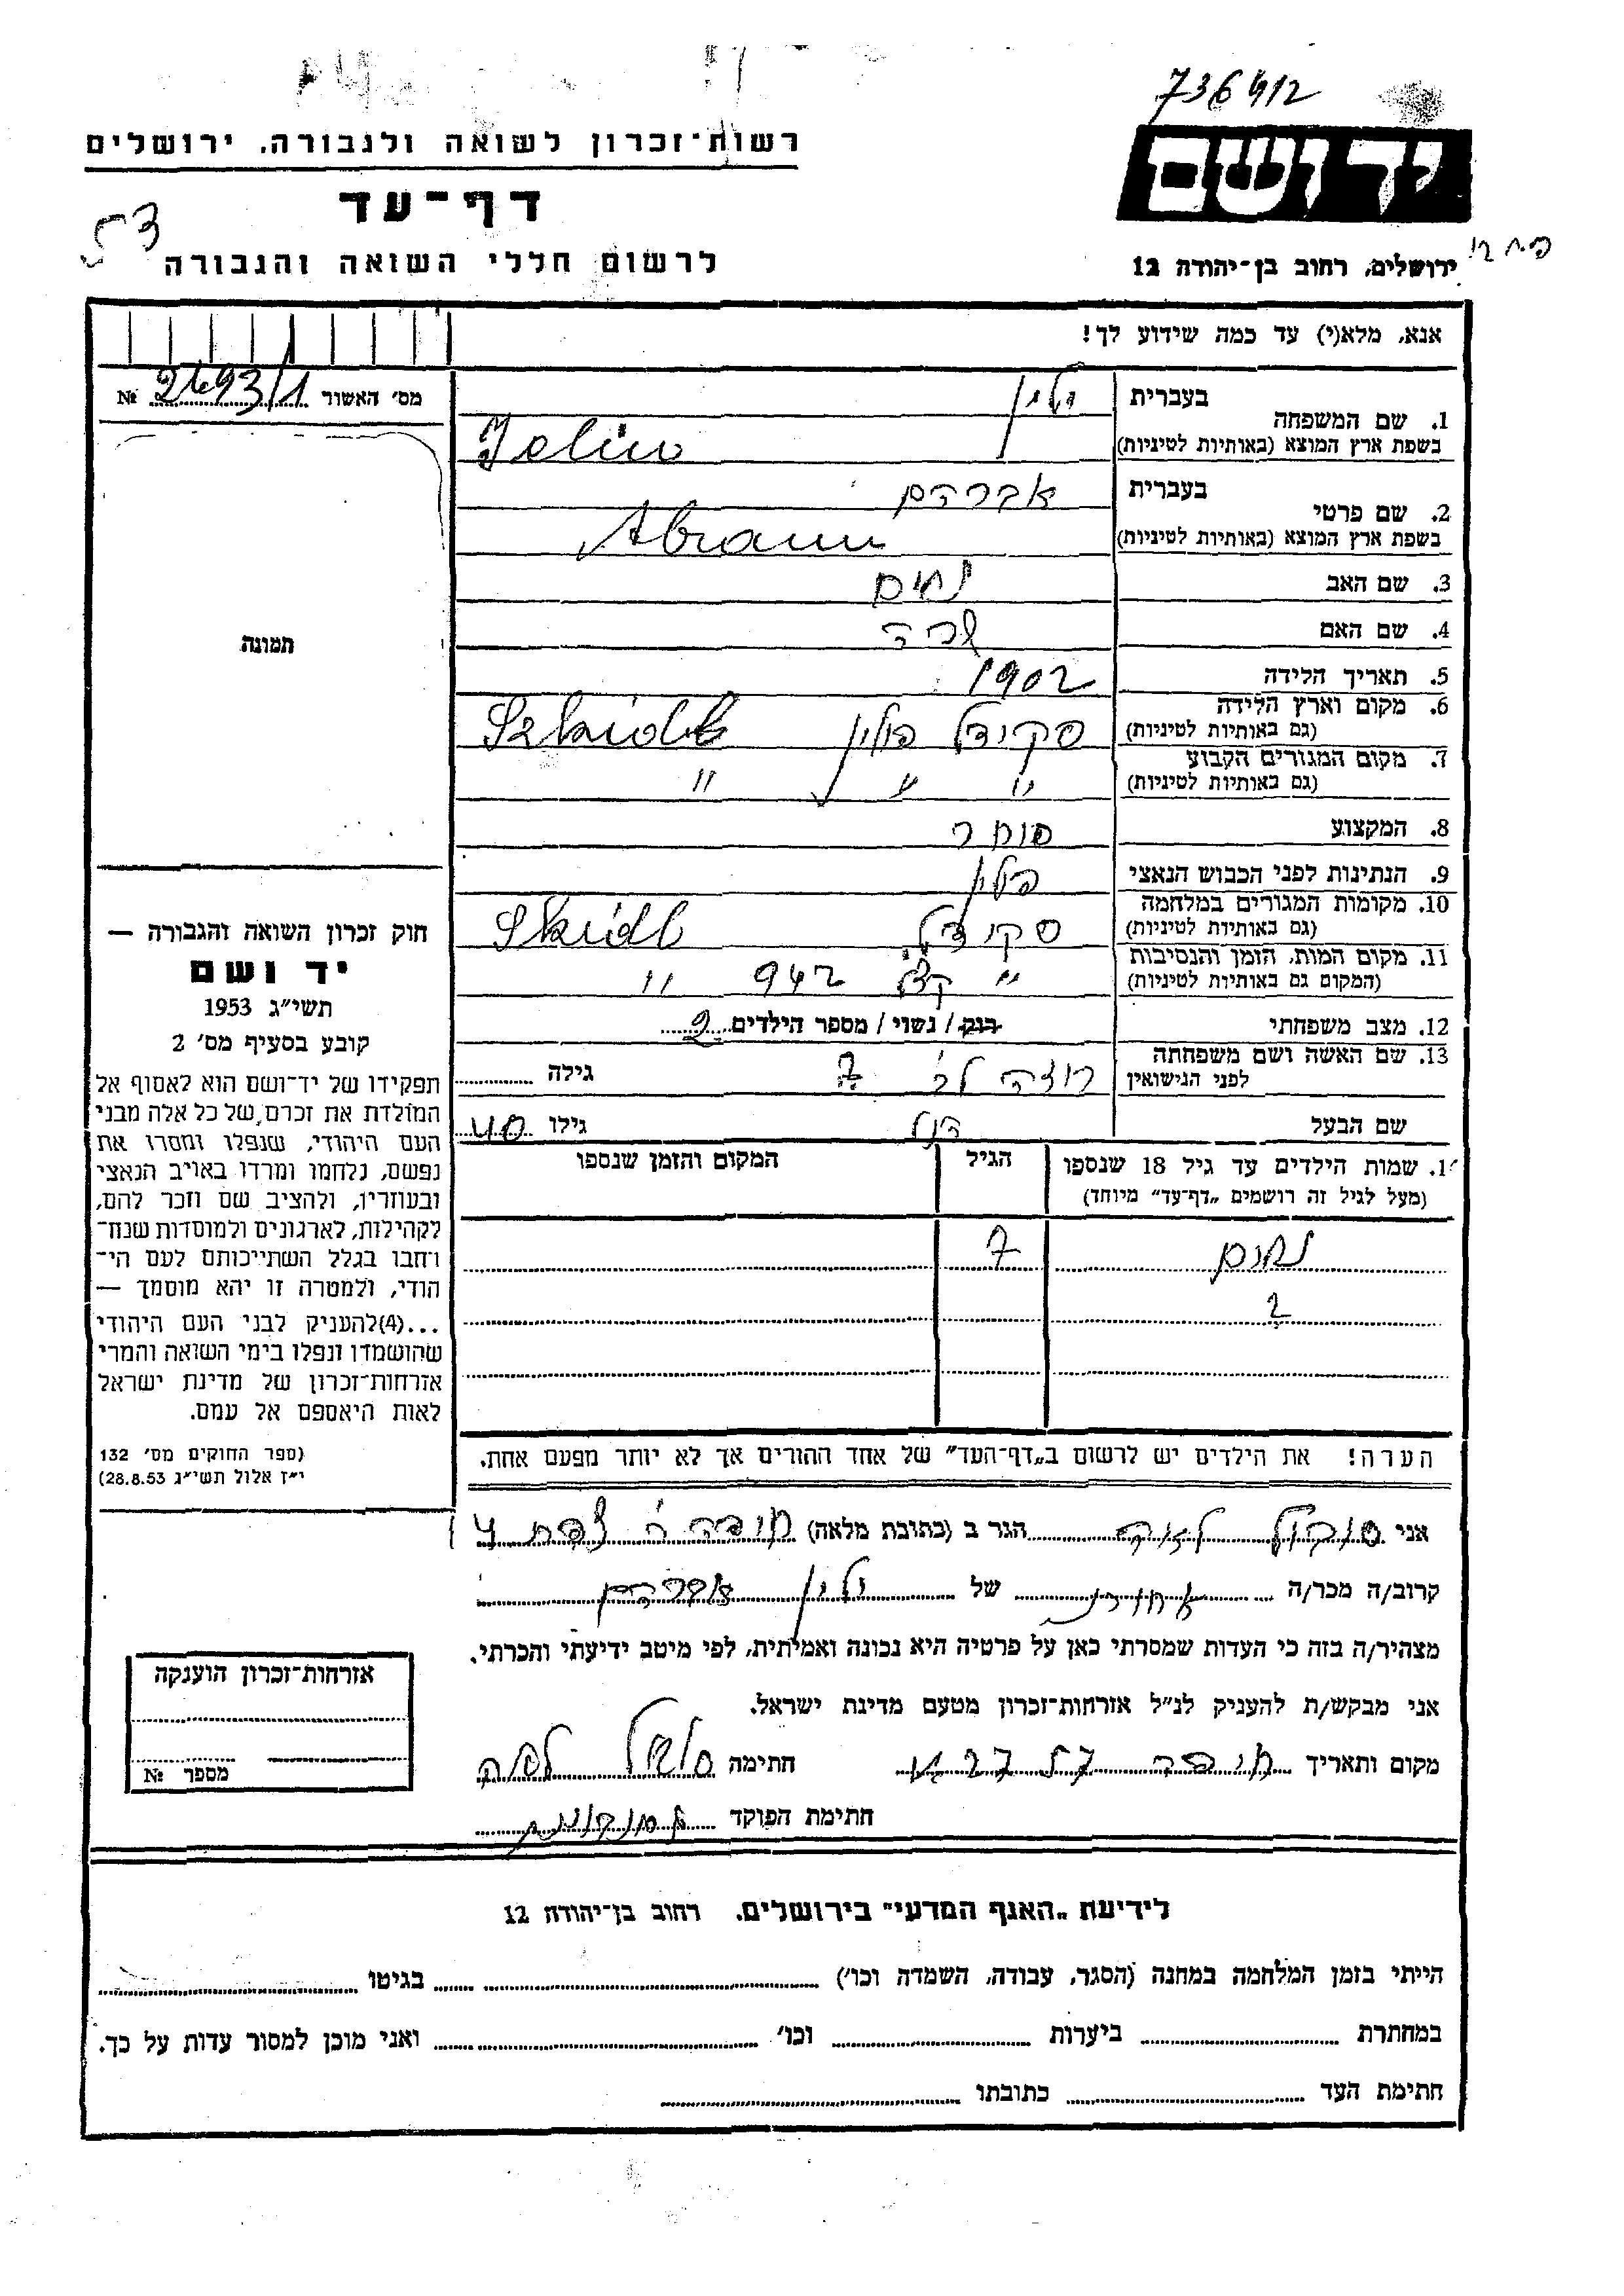 736412
רשות־זכרון לשואה ולגבורה. ירושלים
יד ושם
דף־עד
לרשום חללי השואה והגבורה
ירושלים, רחוב בן־יהודה 12
אנא, מלא(י) עד כמה שידוע לך!
מס׳ האשור № 2693/1
תמונה
1. שם המשפחה
בעברית ילין
בשפת ארץ המוצא (באותיות לטיניות) Jelin
2. שם פרטי
בעברית אברהם
בשפת ארץ המוצא (באותיות לטיניות) Abram
3. שם האב נחום
4. שם האם שרה
5. תאריך הלידה 1902
6. מקום וארץ הלידה סקידל פולין
(גם באותיות לטיניות)
7. מקום המגורים הקבוע " " "
(גם באותיות לטיניות)
8. המקצוע סוחר
9. הנתינות לפני הכבוש הנאצי פולין
10. מקומות המגורים במלחמה סקידל Skidl
(גם באותיות לטיניות)
11. מקום המות, הזמן והנסיבות " 942 "
(המקום גם באותיות לטיניות)
12. מצב משפחתי רוק / נשוי / מספר הילדים 2
13. שם האשה ושם משפחתה
לפני הנישואין ? גילה
שם הבעל הנ״ל גילו 40
1. שמות הילדים עד גיל 18 שנספו
(מעל לגיל זה רושמים „דף־עד״ מיוחד)
הגיל
המקום והזמן שנספו
נחום 7
?
הערה! את הילדים יש לרשום ב„דף־העד״ של אחד ההורים אך לא יותר מפעם אחת.
חוק זכרון השואה והגבורה —
יד ושם
תשי״ג 1953
קובע בסעיף מס׳ 2
תפקידו של יד־ושם הוא לאסוף אל
המולדת את זכרם של כל אלה מבני
העם היהודי, שנפלו ומסרו את
נפשם, נלחמו ומרדו באויב הנאצי
ובעוזריו, ולהציב שם וזכר להם,
לקהילות, לארגונים ולמוסדות שנח־
רחבו בגלל השתייכותם לעם הי־
הודי, ולמטרה זו יהא מוסמך —
...(4)להעניק לבני העם היהודי
שהושמדו ונפלו בימי השואה והמרי
אזרחות־זכרון של מדינת ישראל
לאות היאספם אל עמם.
(ספר החוקים מס׳ 132
י״ז אלול תשי״ג 28.8.53)
אני סוקול לאה הגר ב (כתובת מלאה) חיפה
קרוב/ה מכר/ה של ילין אברהם
מצהיר/ה בזה כי העדות שמסרתי כאן על פרטיה היא נכונה ואמיתית, לפי מיטב ידיעתי והכרתי.
אני מבקש/ת להעניק לנ״ל אזרחות־זכרון מטעם מדינת ישראל.
מקום ותאריך חיפה חתימה סוקול לאה
חתימת הפוקד
אזרחות־זכרון הוענקה
מספר №
לידיעת „האגף המדעי״ בירושלים. רחוב בן־יהודה 12
הייתי בזמן המלחמה במחנה (הסגר, עבודה, השמדה וכו׳) בגיטו
במחתרת ביערות וכו׳ ואני מוכן למסור עדות על כך.
חתימת העד כתובתו